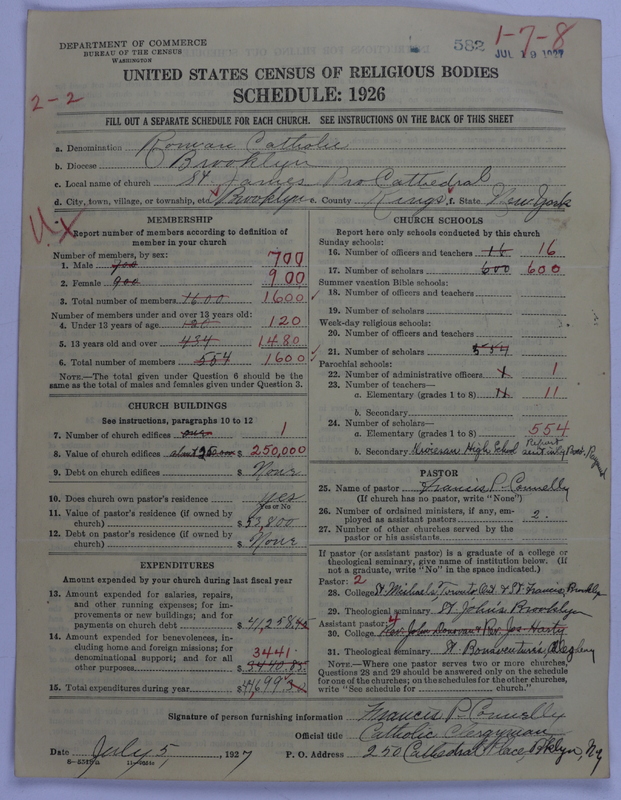 1-7-8
DEPARTMENT OF COMMERCE
BUREAU OF THE CENSUS
WASHINGTON
582
JUL 19 1927
UNITED STATES CENSUS OF RELIGIOUS BODIES
2-2
SCHEDULE: 1926
FILL OUT A SEPARATE SCHEDULE FOR EACH CHURCH. SEE INSTRUCTIONS ON THE BACK OF THIS SHEET
a. Denomination Roman Catholic
b. Diocese Brooklyn
c. Local name of church St. James Pro Cathedral
d. City, town, village, or township, etc. Brooklyn e. County Kings f. State New York
MEMBERSHIP
Report number of members according to definition of
member in your church
Number of members, by sex:
1. Male 700 700
2. Female 900 900
3. Total number of members 1600 1600
Number of members under and over 13 years old:
4. Under 13 years of age 120 120
5. 13 years old and over 434 1480
6. Total number of members 554 1600
NOTE.—The total given under Question 6 should be the
same as the total of males and females given under Question 3.
CHURCH BUILDINGS
See instructions, paragraphs 10 to 12
7. Number of church edifices 1
8. Value of church edifices about 250,000 $ 250,000
9. Debt on church edifices $ None
10. Does church own pastor's residence yes
Yes or No
11. Value of pastor's residence (if owned by
church) $ 53,800
12. Debt on pastor's residence (if owned by
church) $ None
EXPENDITURES
Amount expended by your church during last fiscal year
13. Amount expended for salaries, repairs,
and other running expenses; for im-
provements or new buildings; and for
payments on church debt $ 41,258.45
14. Amount expended for benevolences, in-
cluding home and foreign missions; for
denominational support; and for all
other purposes 3441. $ 3440.85
15. Total expenditures during year $
CHURCH SCHOOLS
Report here only schools conducted by this church
Sunday schools:
16. Number of officers and teachers 16 16
17. Number of scholars 600 600
Summer vacation Bible schools:
18. Number of officers and teachers
19. Number of scholars
Week-day religious schools:
20. Number of officers and teachers
21. Number of scholars 554
Parochial schools:
22. Number of administrative officers 1 1
23. Number of teachers—
a. Elementary (grades 1 to 8) 11 11
b. Secondary
24. Number of scholars—
a. Elementary (grades 1 to 8) 554
b. Secondary High School Report sent in by
PASTOR
25. Name of pastor Francis P. Connelly
(If church has no pastor, write "None")
26. Number of ordained ministers, if any, em-
ployed as assistant pastors 2
27. Number of other churches served by the
pastor or his assistants
If pastor (or assistant pastor) is a graduate of a college or
theological seminary, give name of institution below. (If
not a graduate, write "No" in the space indicated.)
Pastor: 2
28. College St Michaels, Toronto Ont & St Francis, Brooklyn
29. Theological seminary St Johns Brooklyn
Assistant pastor: 4
30. College Rev. John Donovan & Rev. Jos. Hasty
31. Theological seminary St Bonaventures, Allegheny
NOTE.—Where one pastor serves two or more churches,
Questions 28 and 29 should be answered only on the schedule
for one of the churches; on the schedules for the other churches,
write "See schedule for church."
Signature of person furnishing information Francis P. Connelly
Official title Catholic Clergyman
Date July 5, 1927 P. O. Address 250 Cathedral Place, Bklyn, Ny